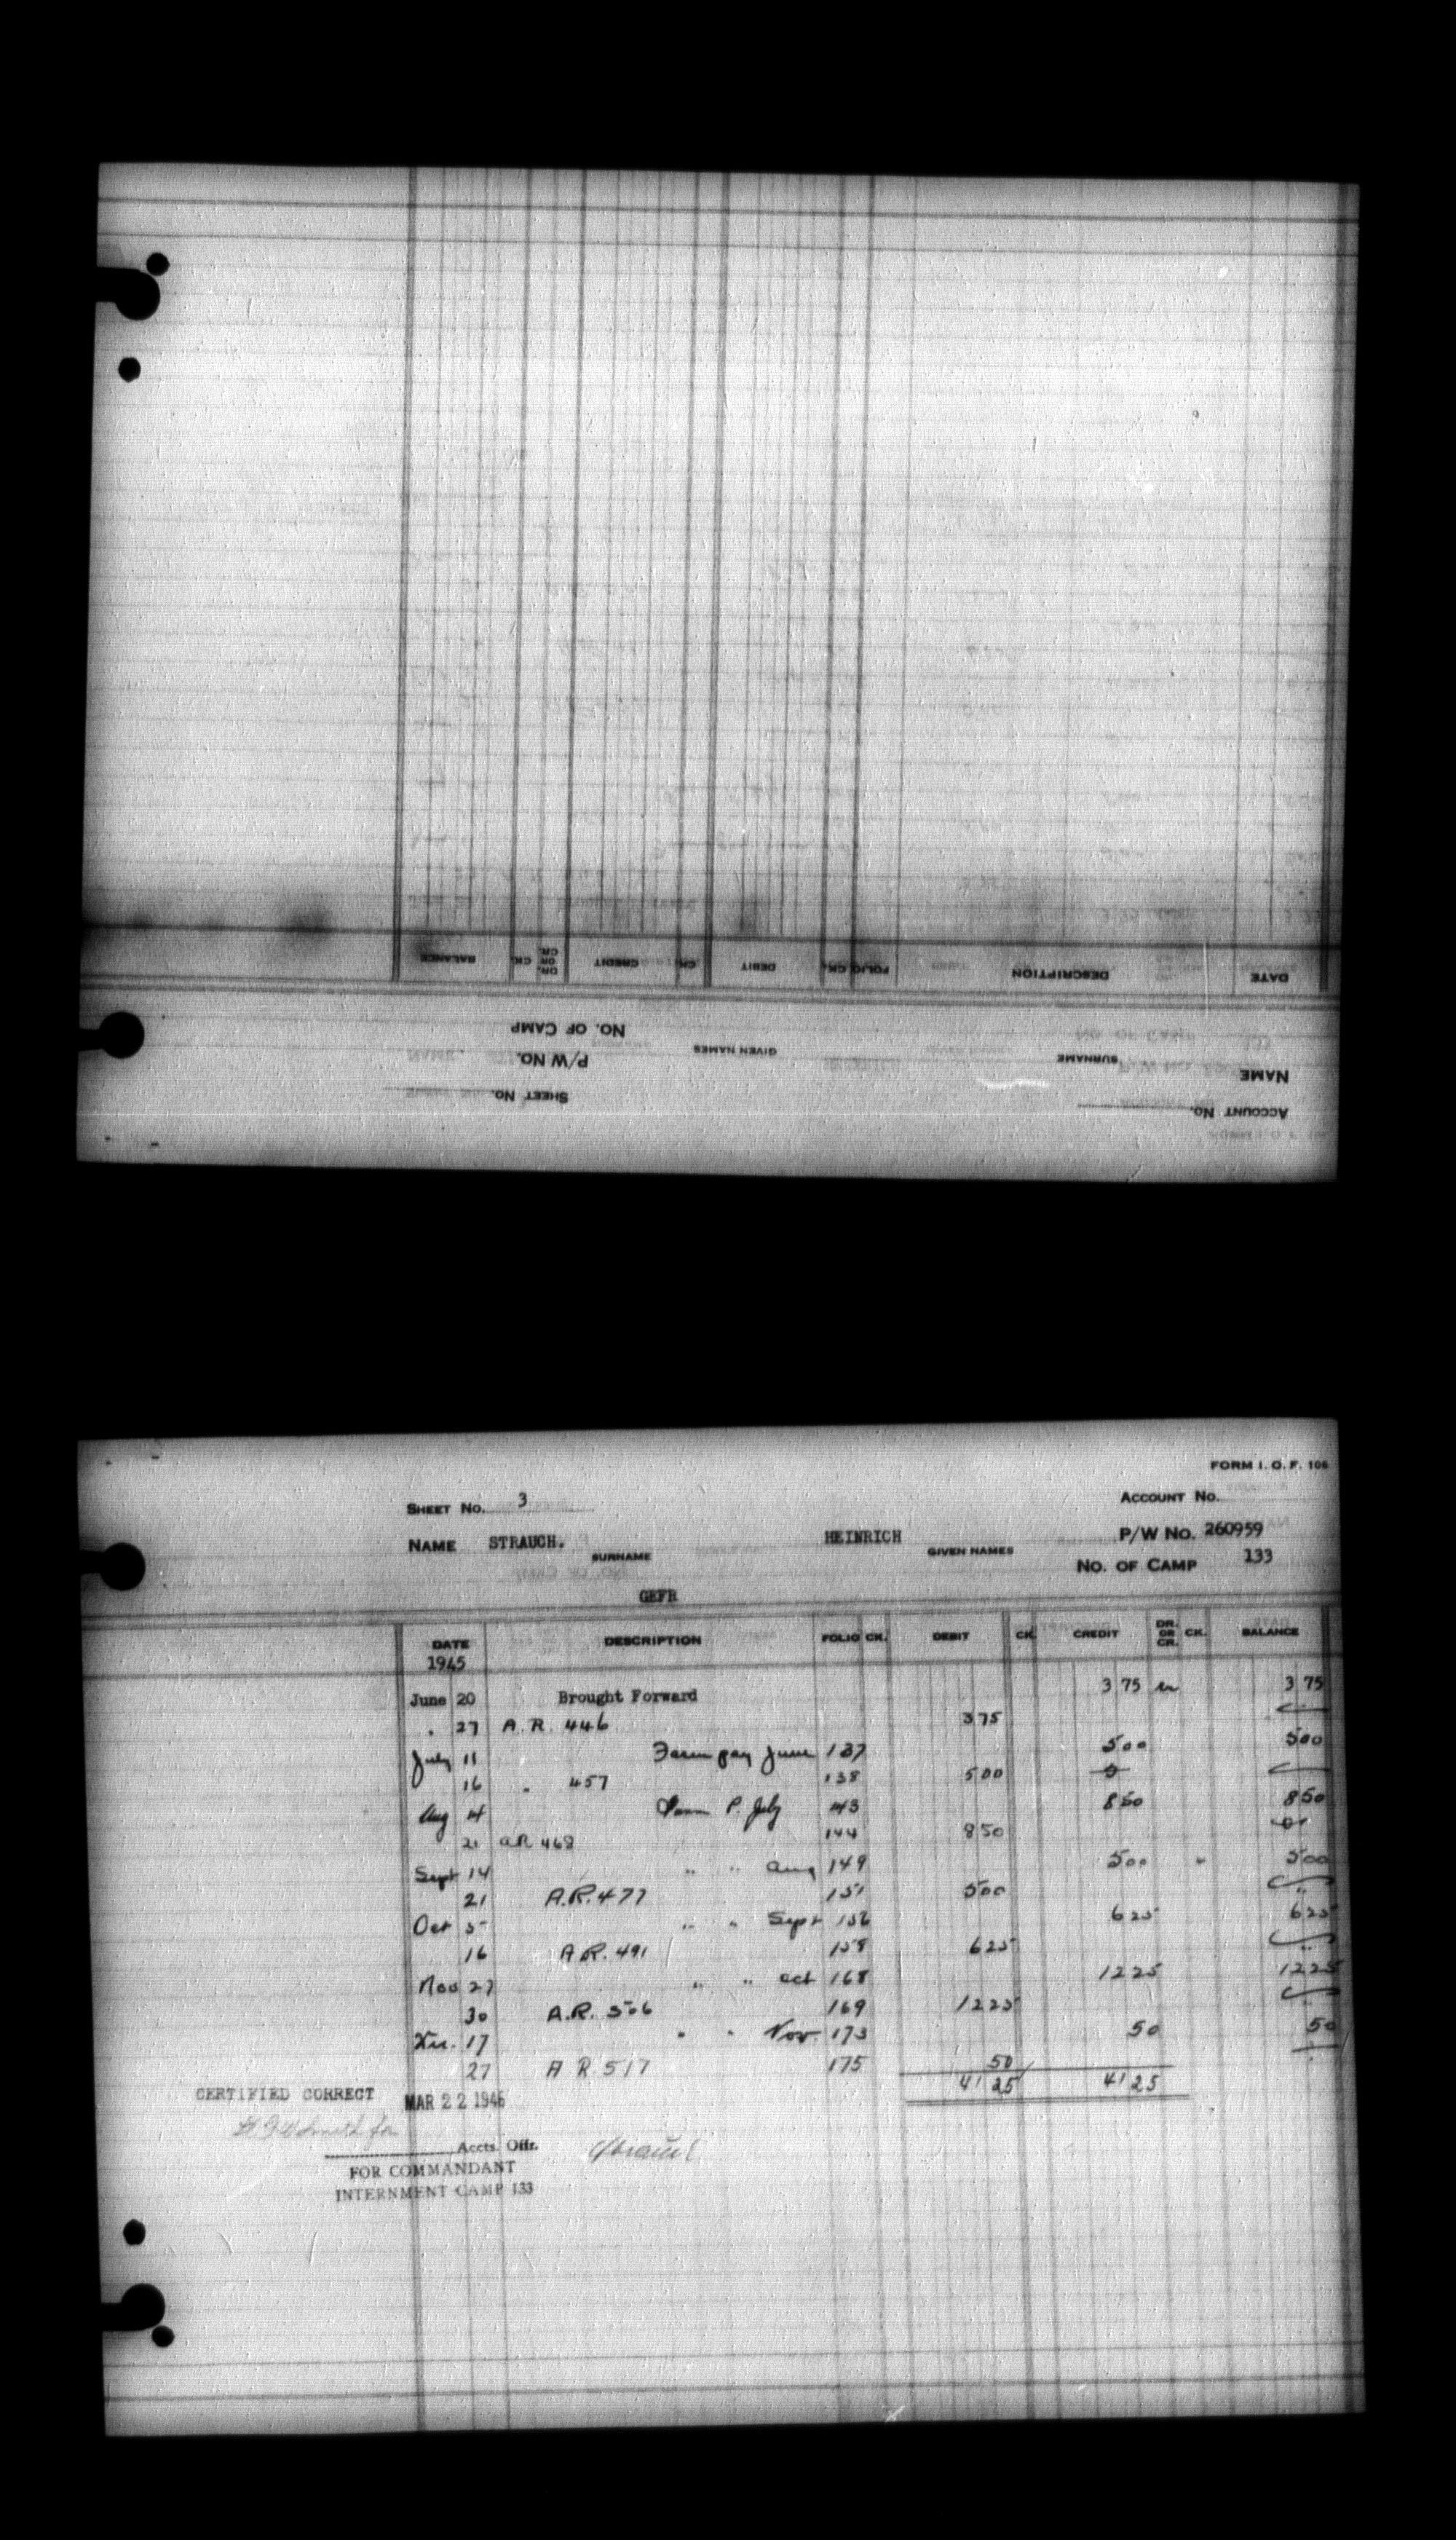 ACCOUNT No.
SHEET No.
NAME SURNAME GIVEN NAMES P/W No.
No. OF CAMP
DATE DESCRIPTION FOLIO CK. DEBIT CK. CREDIT DR. OR CR. CK. BALANCE
FORM I. O. F. 106
SHEET No. 3 ACCOUNT No.
NAME STRAUCH. SURNAME HEINRICH GIVEN NAMES P/W No. 260959
No. OF CAMP 133
GEFR
DATE DESCRIPTION FOLIO CK. DEBIT CK. CREDIT DR. OR CR. CK. BALANCE
1945
June 20 Brought Forward 3 75 3 75
" 27 A.R. 446 3 75
July 11 Farm pay June 137 5 00 5 00
16 " 457 138 5 00
Aug 14 Farm P. July 143 8 50 8 50
21 A.R 468 144 8 50
Sept 14 " " Aug 149 5 00 " 5 00
21 A.R. 477 151 5 00
Oct 5 " " Sept 156 6 25 6 25
16 A.R. 491 158 6 25
Nov 27 " " Oct 168 12 25 12 25
30 A.R. 506 169 12 25
Dec. 17 " " Nov. 173 50 50
27 A.R. 517 175 50
41 25 41 25
CERTIFIED CORRECT MAR 22 1946
Accts. Offr.
FOR COMMANDANT
INTERNMENT CAMP 133